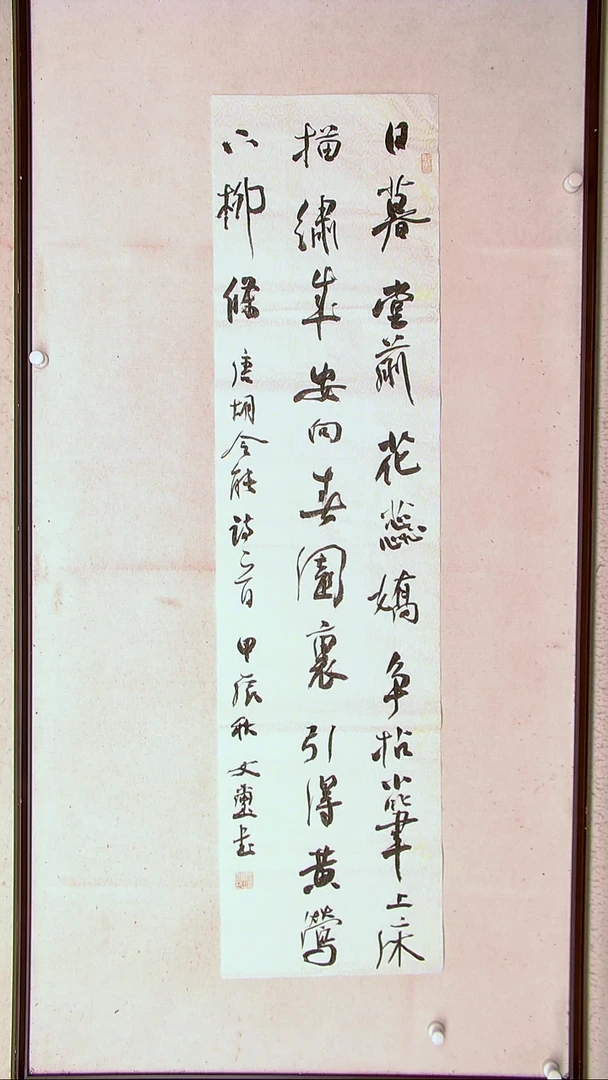 日暮堂前花蕊嬌争拈小筆上床
描繡成安向春園裏引得黄鶯
下柳條 唐胡令能詩一首 甲辰秋 文書